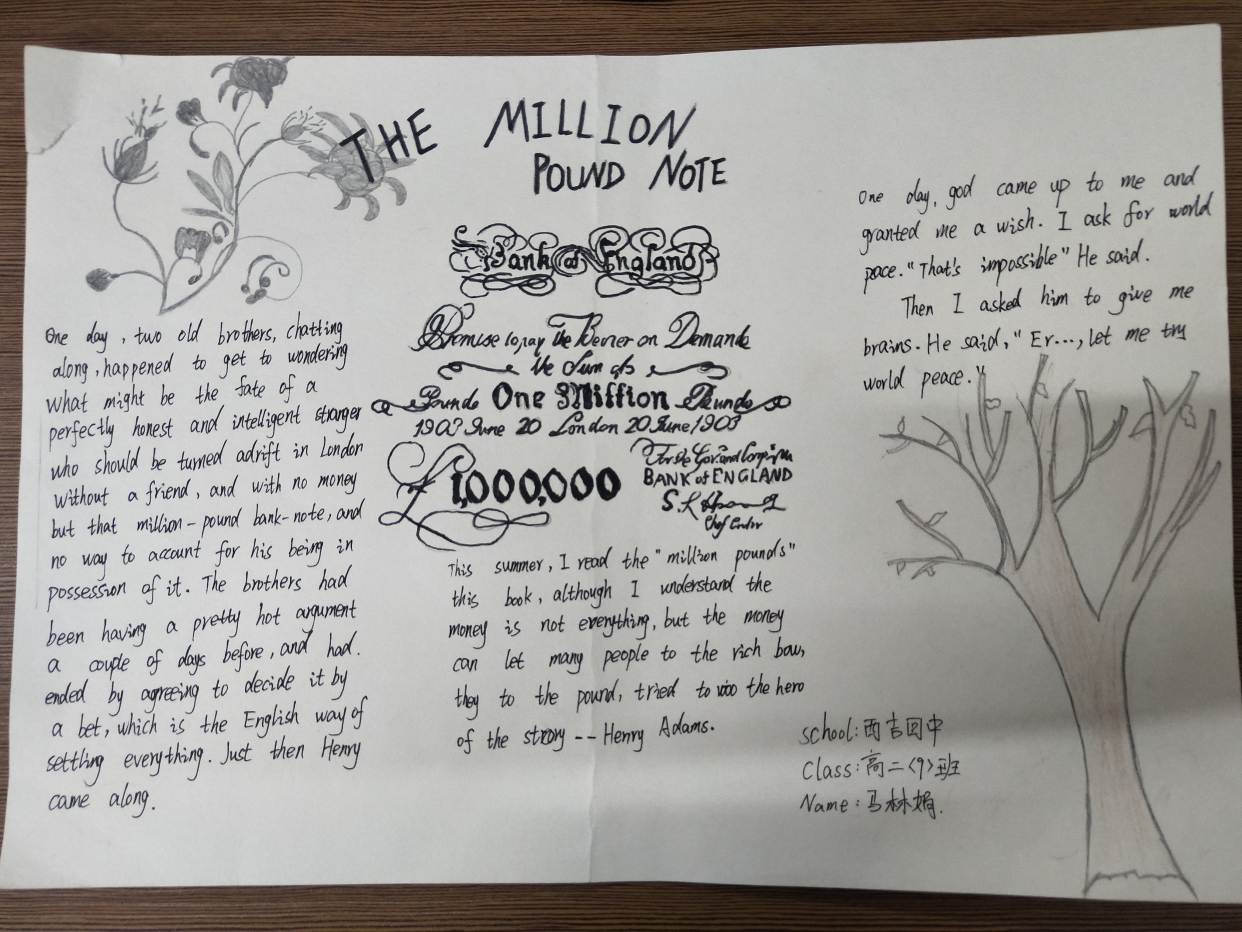 THE MILLION
POUND NOTE
One day, two old brothers, chatting
along, happened to get to wondering
what might be the fate of a
perfectly honest and intelligent stranger
who should be turned adrift in London
without a friend, and with no money
but that million-pound bank-note, and
no way to account for his being in
possession of it. The brothers had
been having a pretty hot argument
a couple of days before, and had.
ended by agreeing to decide it by
a bet, which is the English way of
settling everything. Just then Henry
came along.
Bank of England
Promise to pay the on Demand
the Sum of
One Million
1903 June 20 London 20 June 1903
£1,000,000
For the Gov. and
BANK of ENGLAND
This summer, I read the "million pounds"
this book, although I understand the
money is not everything, but the money
can let many people to the rich bow,
they to the pound, tried to woo the hero
of the story -- Henry Adams.
One day, god came up to me and
granted me a wish. I ask for world
peace. "That's impossible" He said.
Then I asked him to give me
brains. He said, "Er..., let me try
world peace."
School: 西吉回中
Class: 高二<9>班
Name: 马林娟.